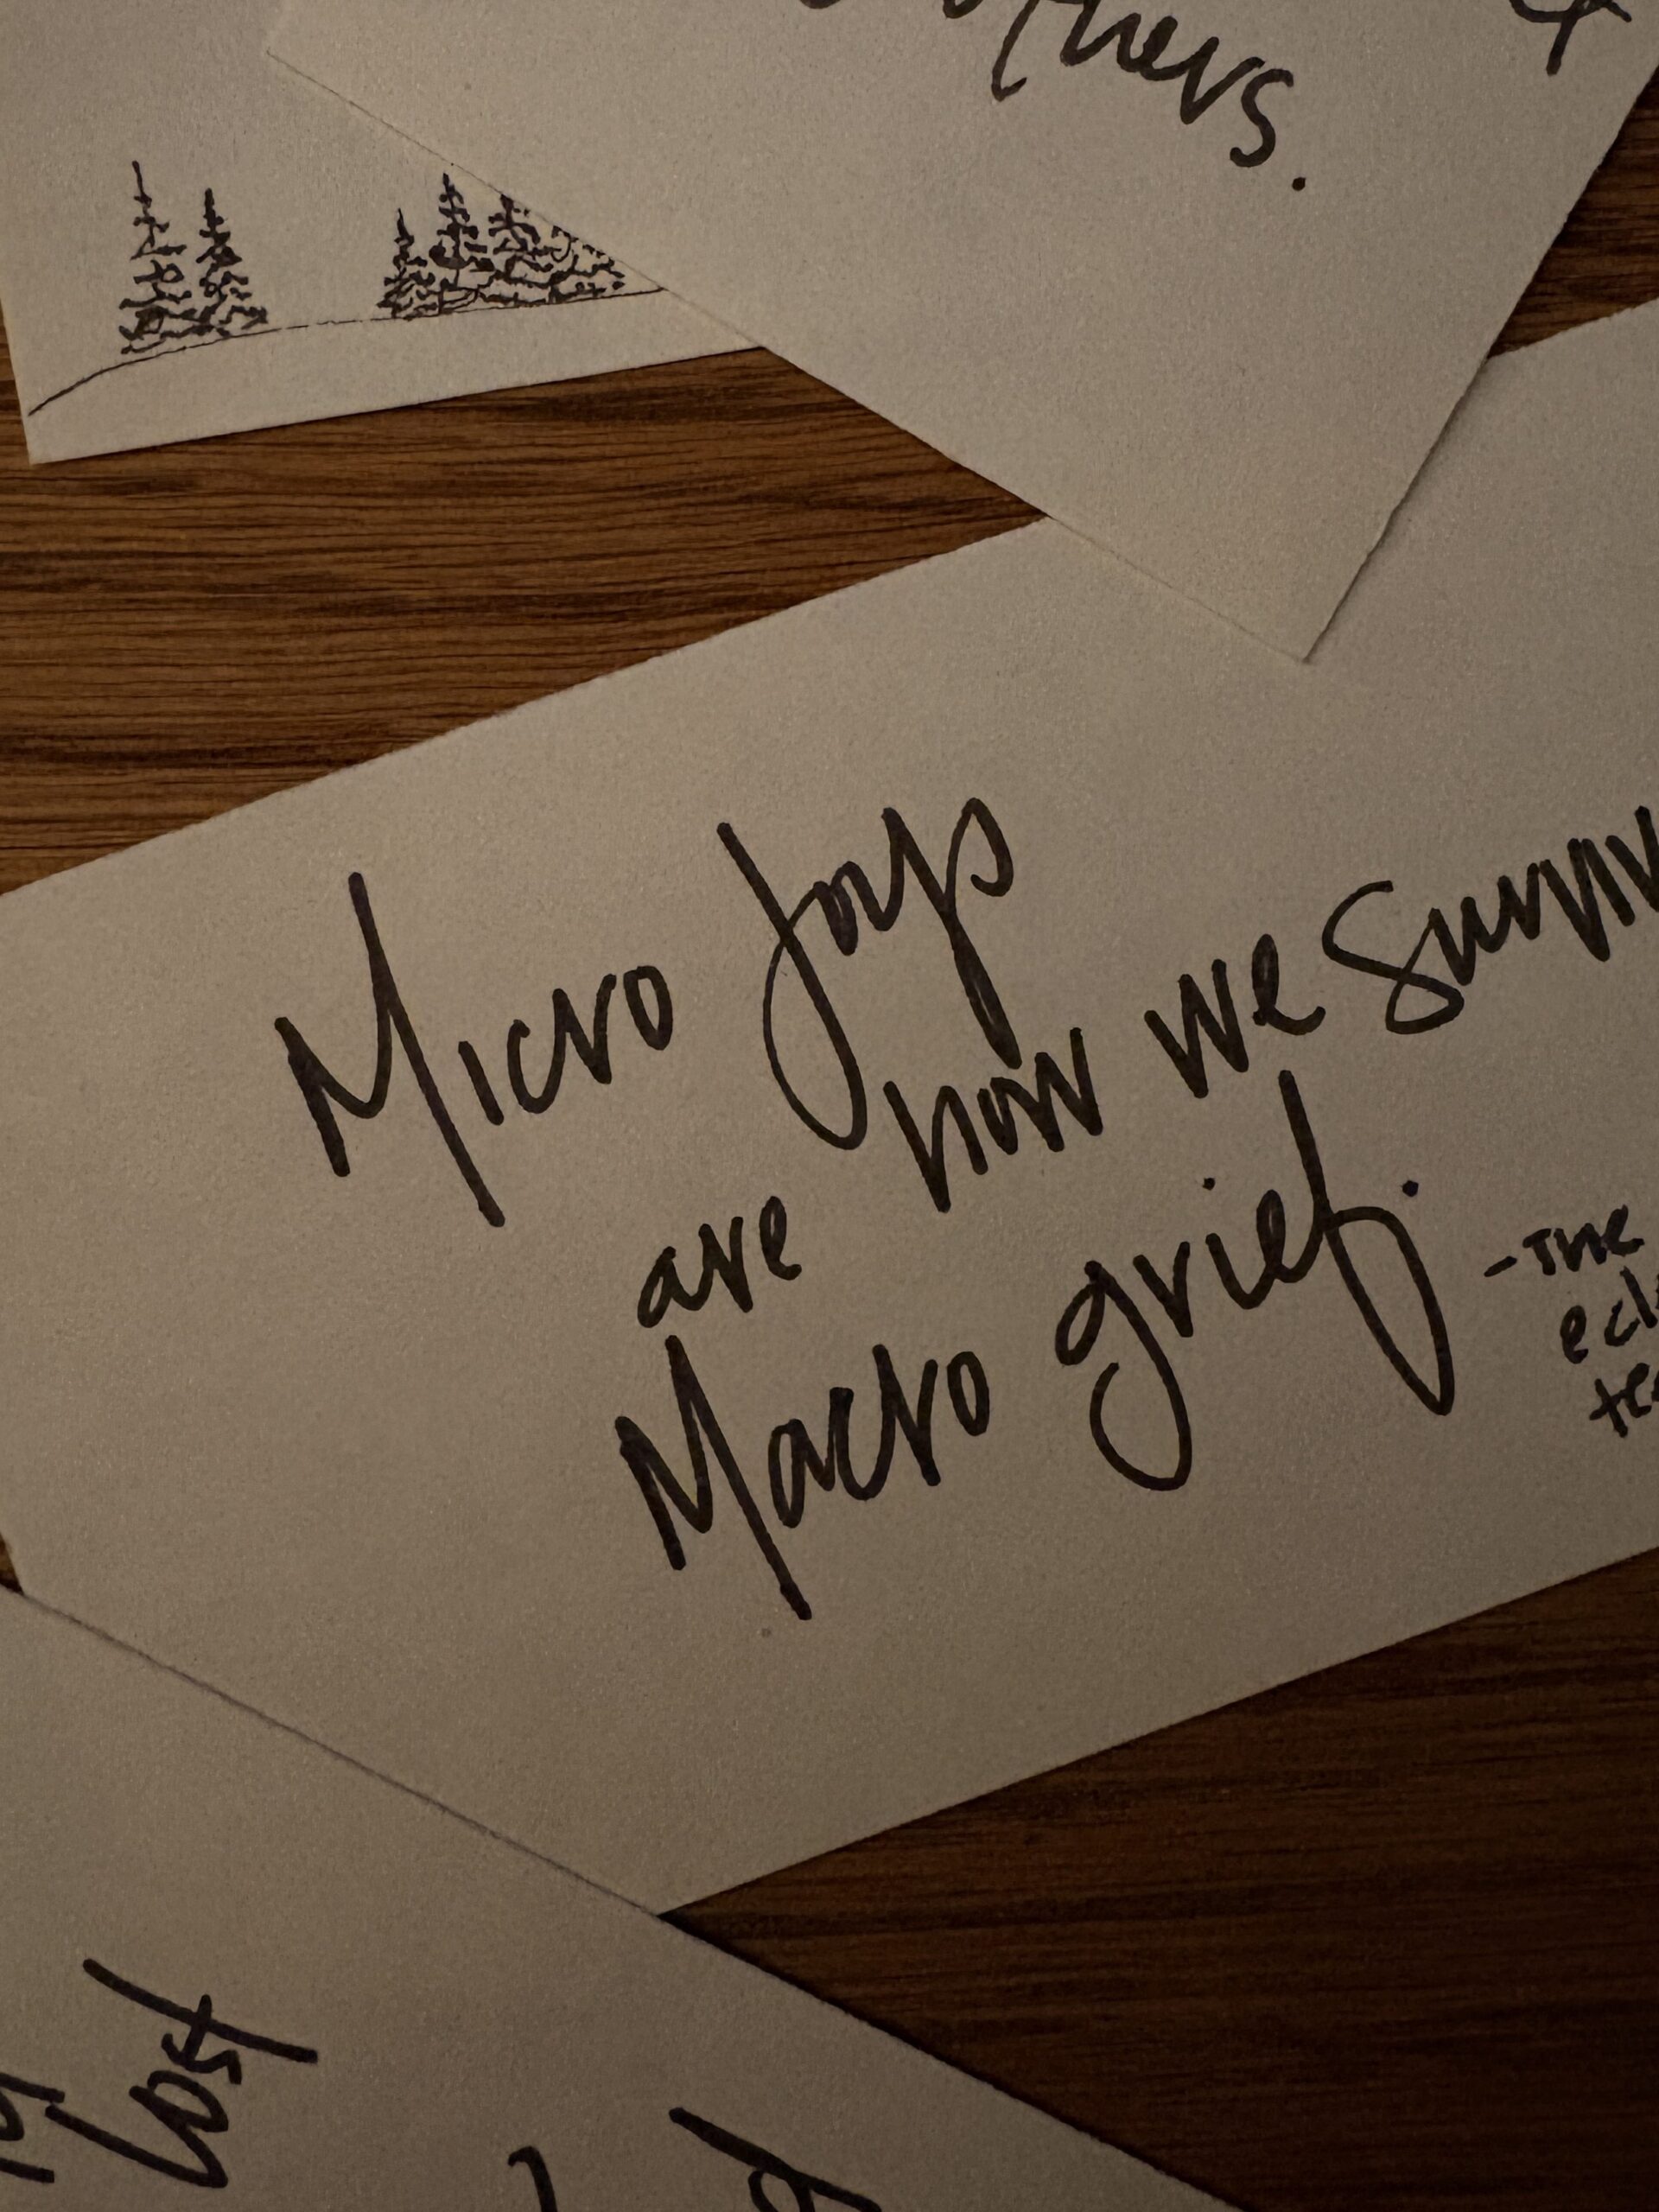 others.
Micro Joys
are how we surviv
Macro grief.
- The
ecl
te
Lost